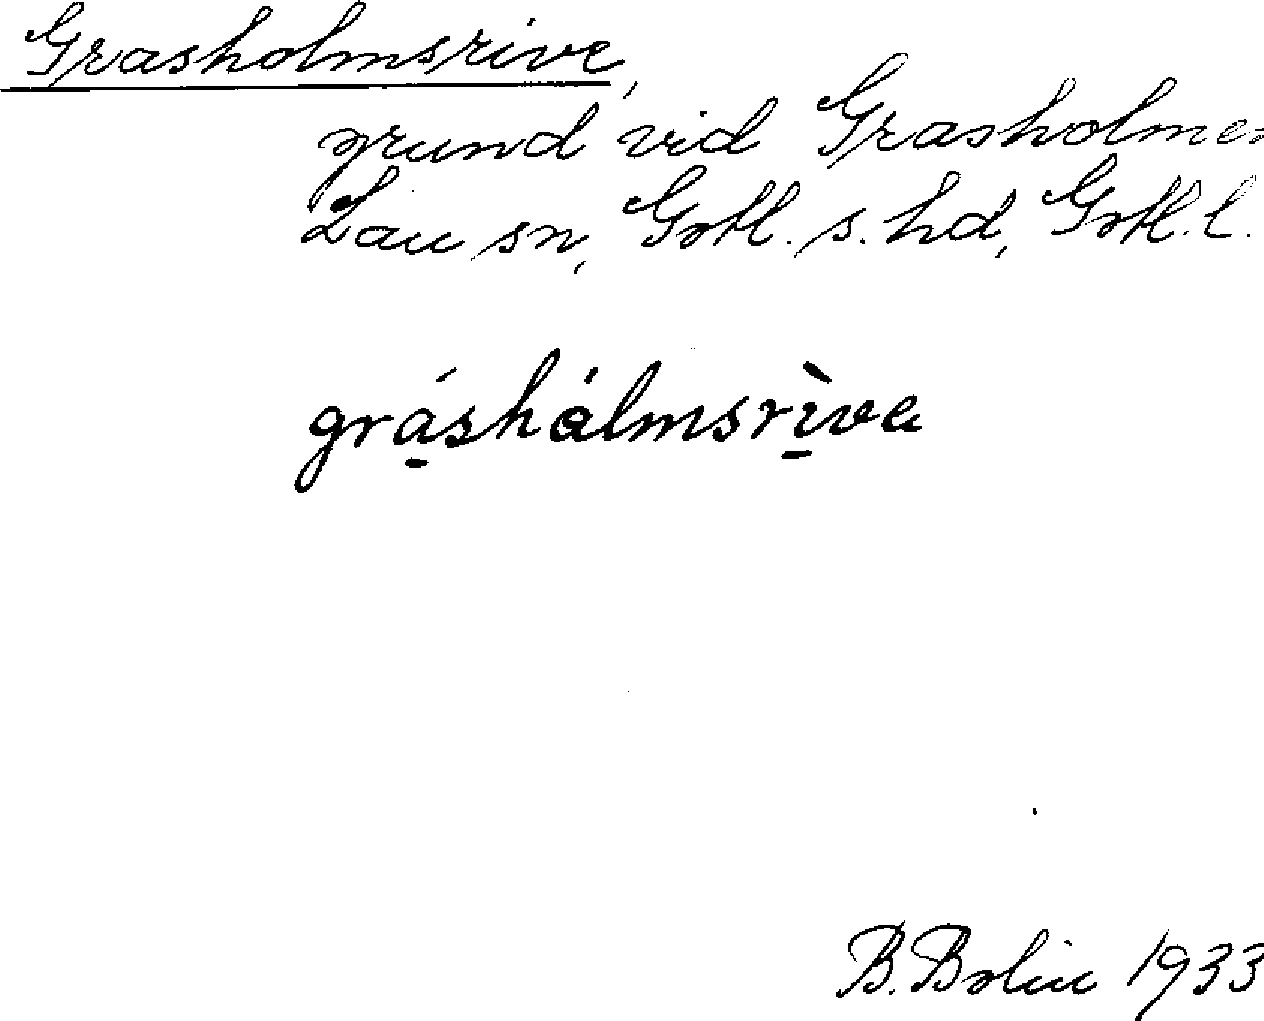 Grasholmsrive,
grund vid Grasholmen
Lau sn, Gotl. s. hd, Gotl. l.
grá̱shålmsrì̱va
B. Bolin 1933